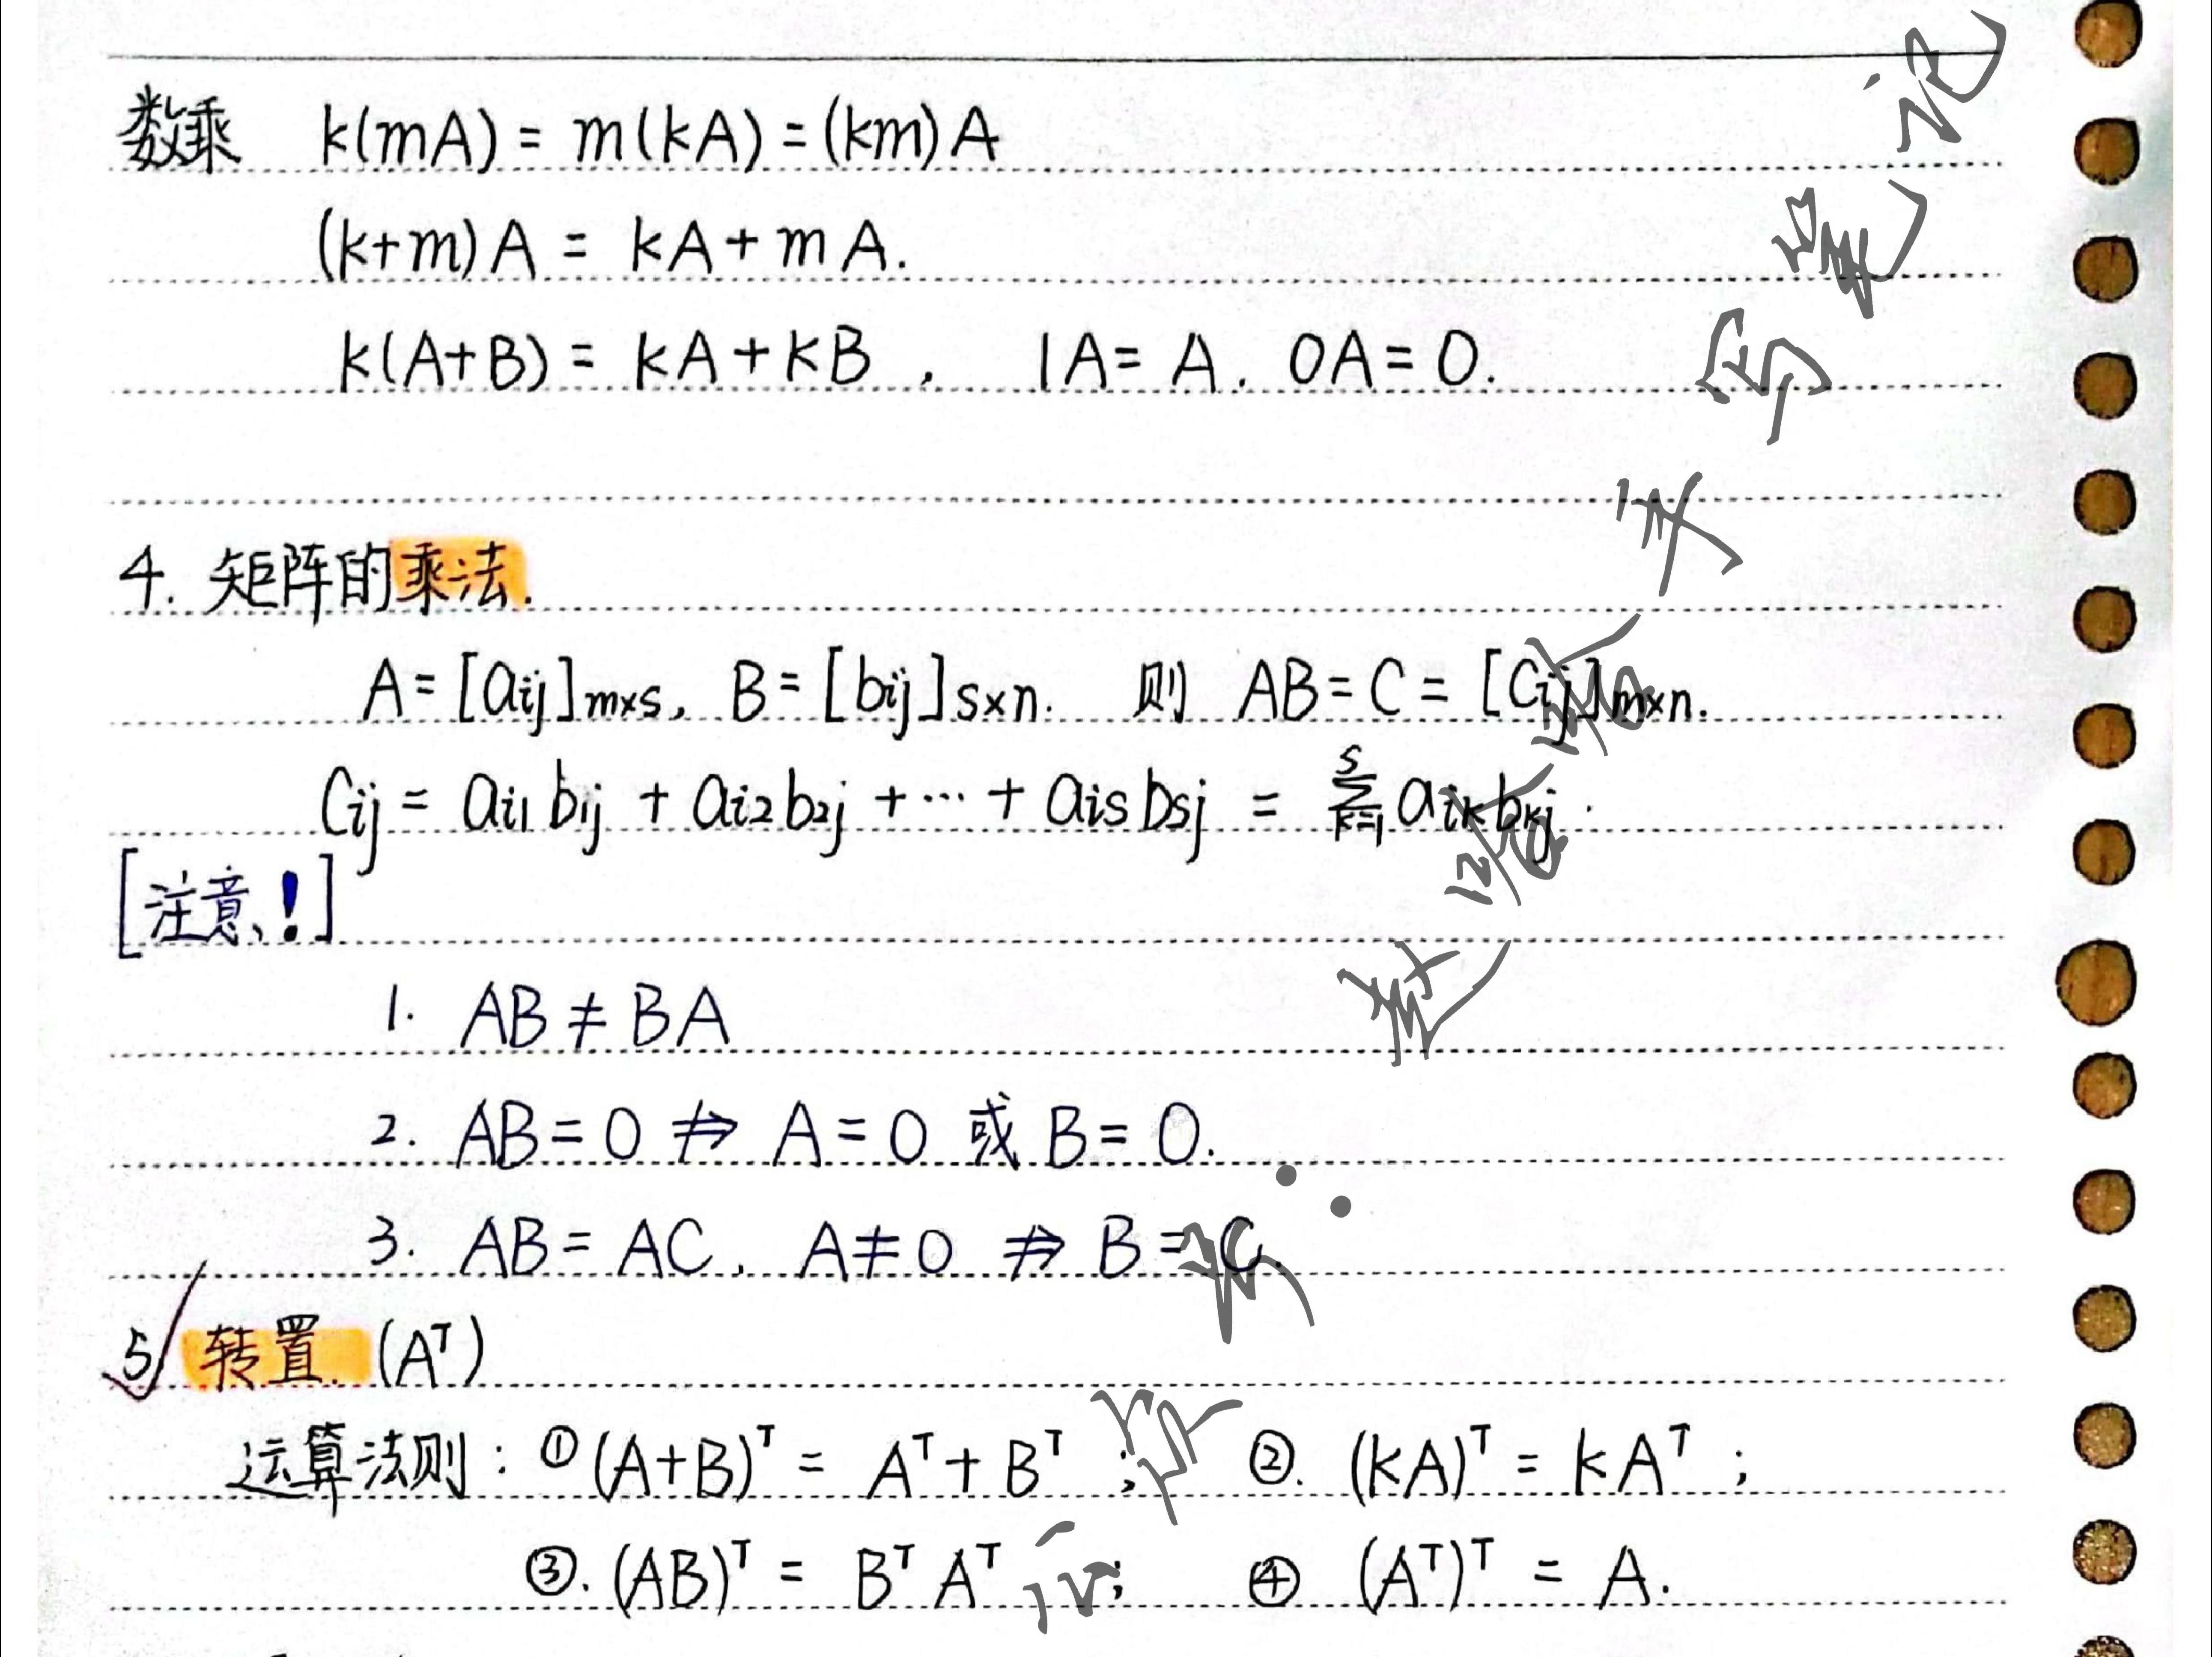 数乘 k(mA) = m(kA) = (km)A
(k+m)A = kA + mA.
k(A+B) = kA + kB , 1A = A. 0A = 0.
4. 矩阵的乘法.
A = [aij]m×s, B = [bij]s×n. 则 AB = C = [Cij]m×n.
Cij = ai1 b1j + ai2 b2j + ··· + ais bsj = Σ(k=1 s) aik bkj .
[注意!]
1. AB ≠ BA
2. AB = 0 ⇏ A = 0 或 B = 0.
3. AB = AC, A ≠ 0 ⇏ B = C.
5 转置. (Aᵀ)
运算法则: ① (A+B)ᵀ = Aᵀ + Bᵀ ; ②. (kA)ᵀ = kAᵀ ;
③. (AB)ᵀ = Bᵀ Aᵀ ; ④ (Aᵀ)ᵀ = A.